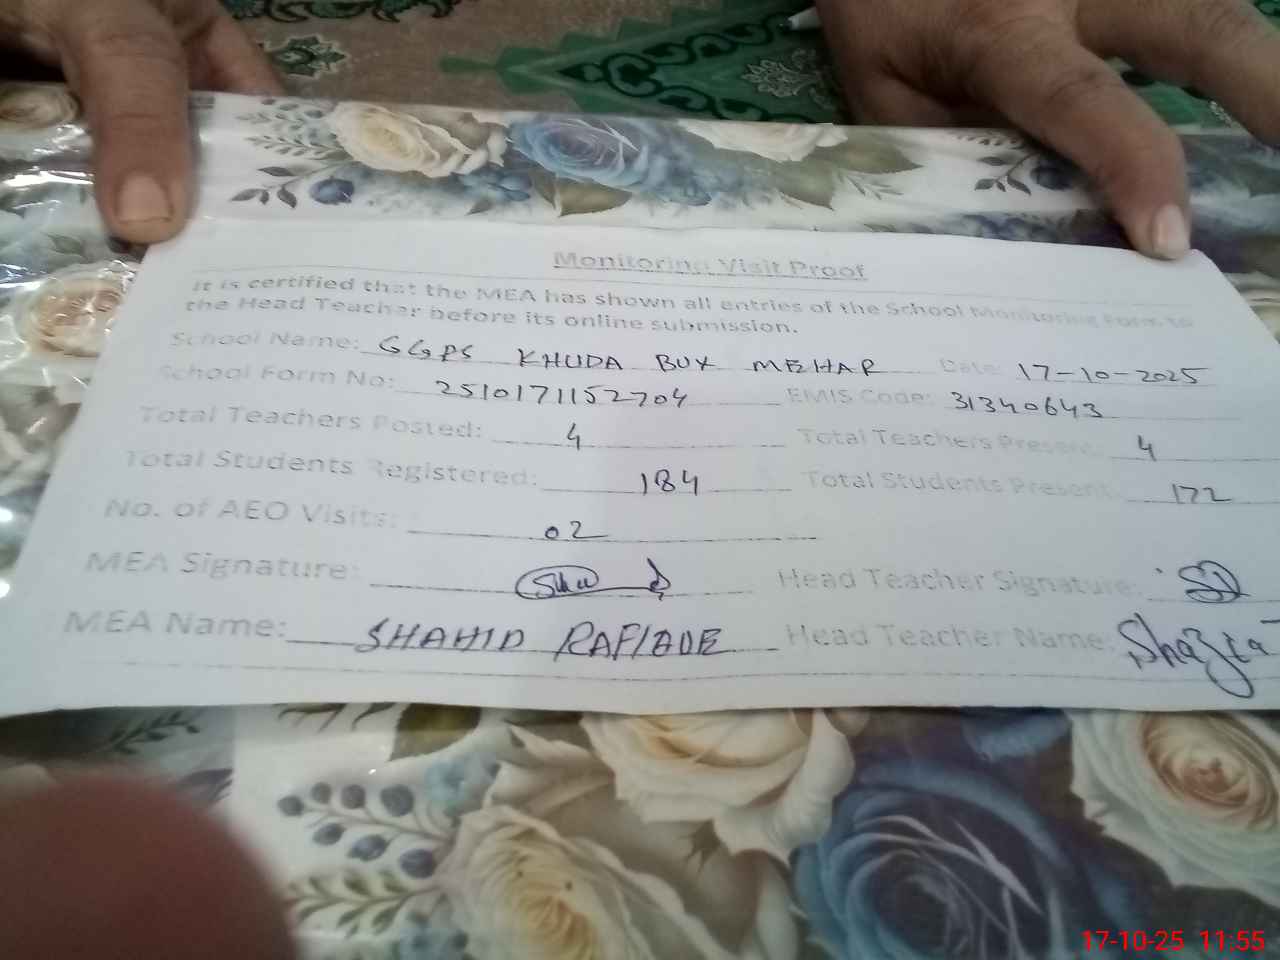 Monitoring Visit Proof
It is certified that the MEA has shown all entries of the School Monitoring Form to
the Head Teacher before its online submission.
School Name: GGPS KHUDA BUX MEHAR Date: 17-10-2025
School Form No: 2510171152704 EMIS Code: 31340643
Total Teachers Posted: 4 Total Teachers Present: 4
Total Students Registered: 184 Total Students Present: 172
No. of AEO Visits: 02
MEA Signature: Head Teacher Signature:
MEA Name: SHAHID Head Teacher Name:
17-10-25 11:55